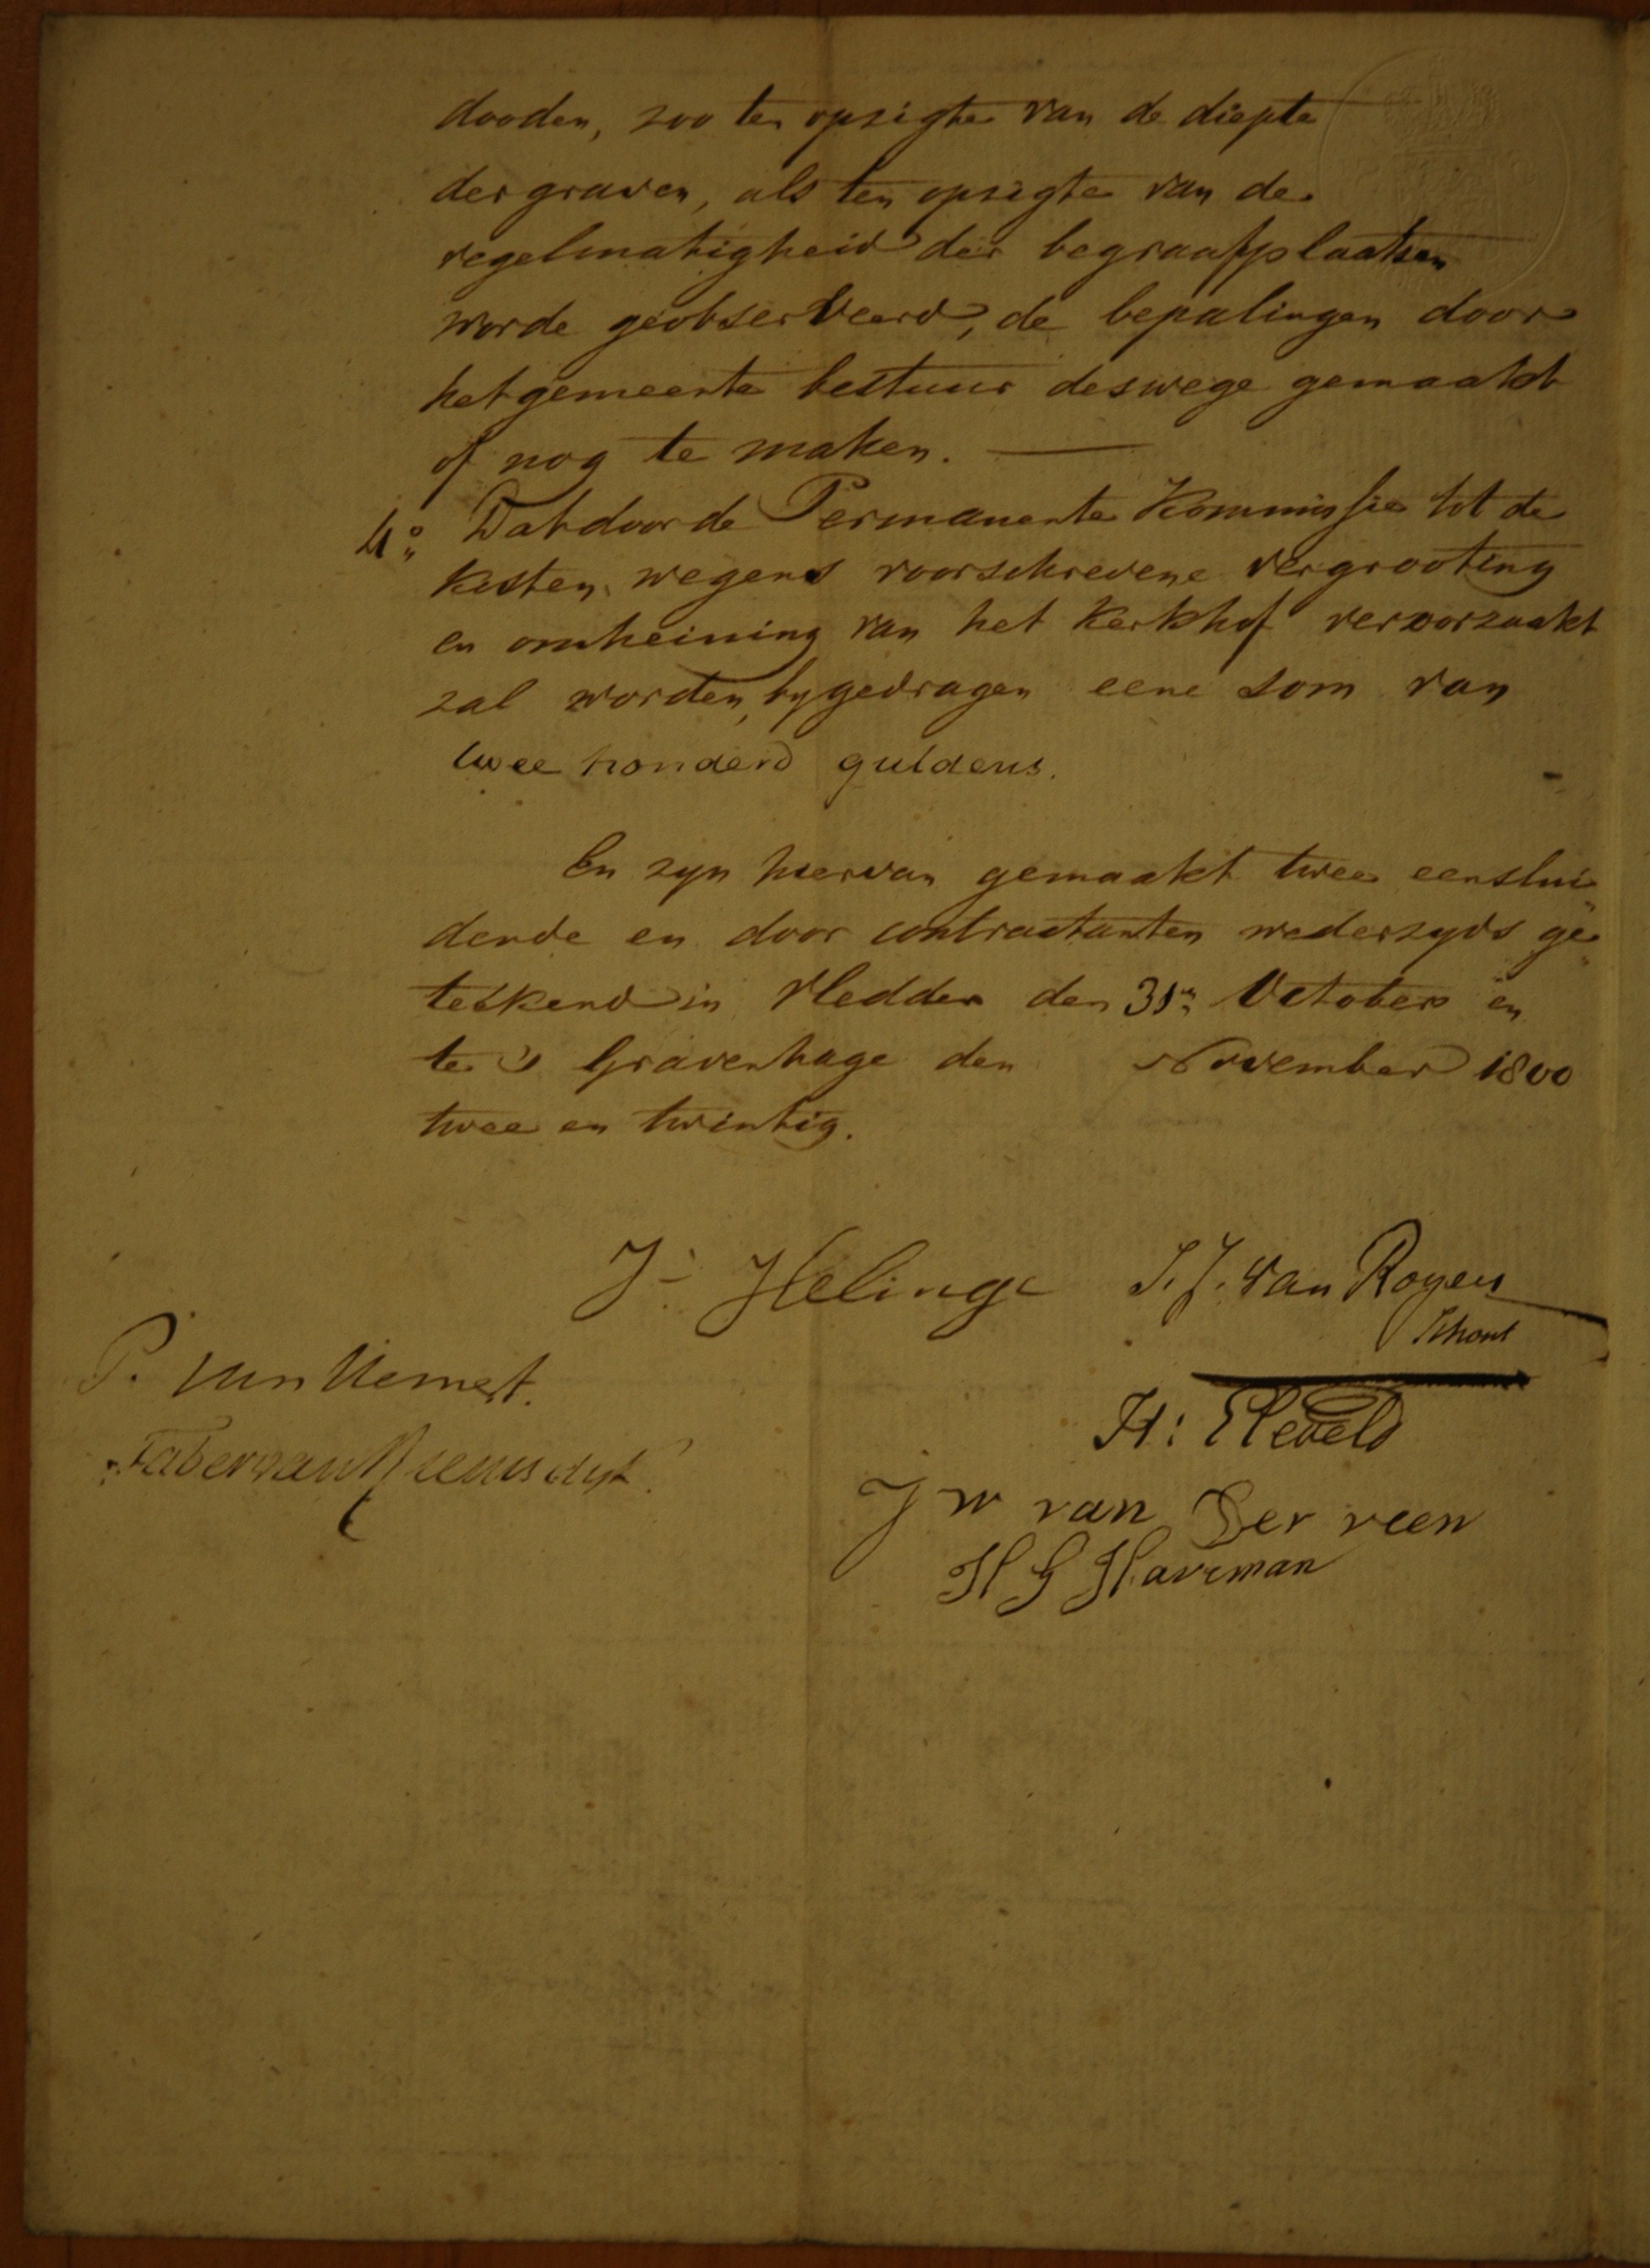 dooden, zoo ten opzigte van de diepte
der graven, als ten opzigte van de
regelmatigheid der begraafplaatsen
worde geobserveerd, de bepalingen door
het gemeente bestuur deswege gemaakt
of nog te maken. —
4o Dat door de Permanente Kommissie tot de
kosten, wegens voorschrevene vergrooting
en omheining van het Kerkhof veroorzaakt
zal worden, bygedragen eene som van
twee honderd guldens.
En zyn hiervan gemaakt twee eenslui„
dende en door contractanten wederzyds ge„
teekend in Vledder den 31n October en
te 's Gravenhage den November 1800
twee en twintig.
J: Helinge S. J. van Royen
Schout
P. van Hemert.
H: Eleveld
Faber van Riemsdijk.
J W van Der veen
H G Haveman